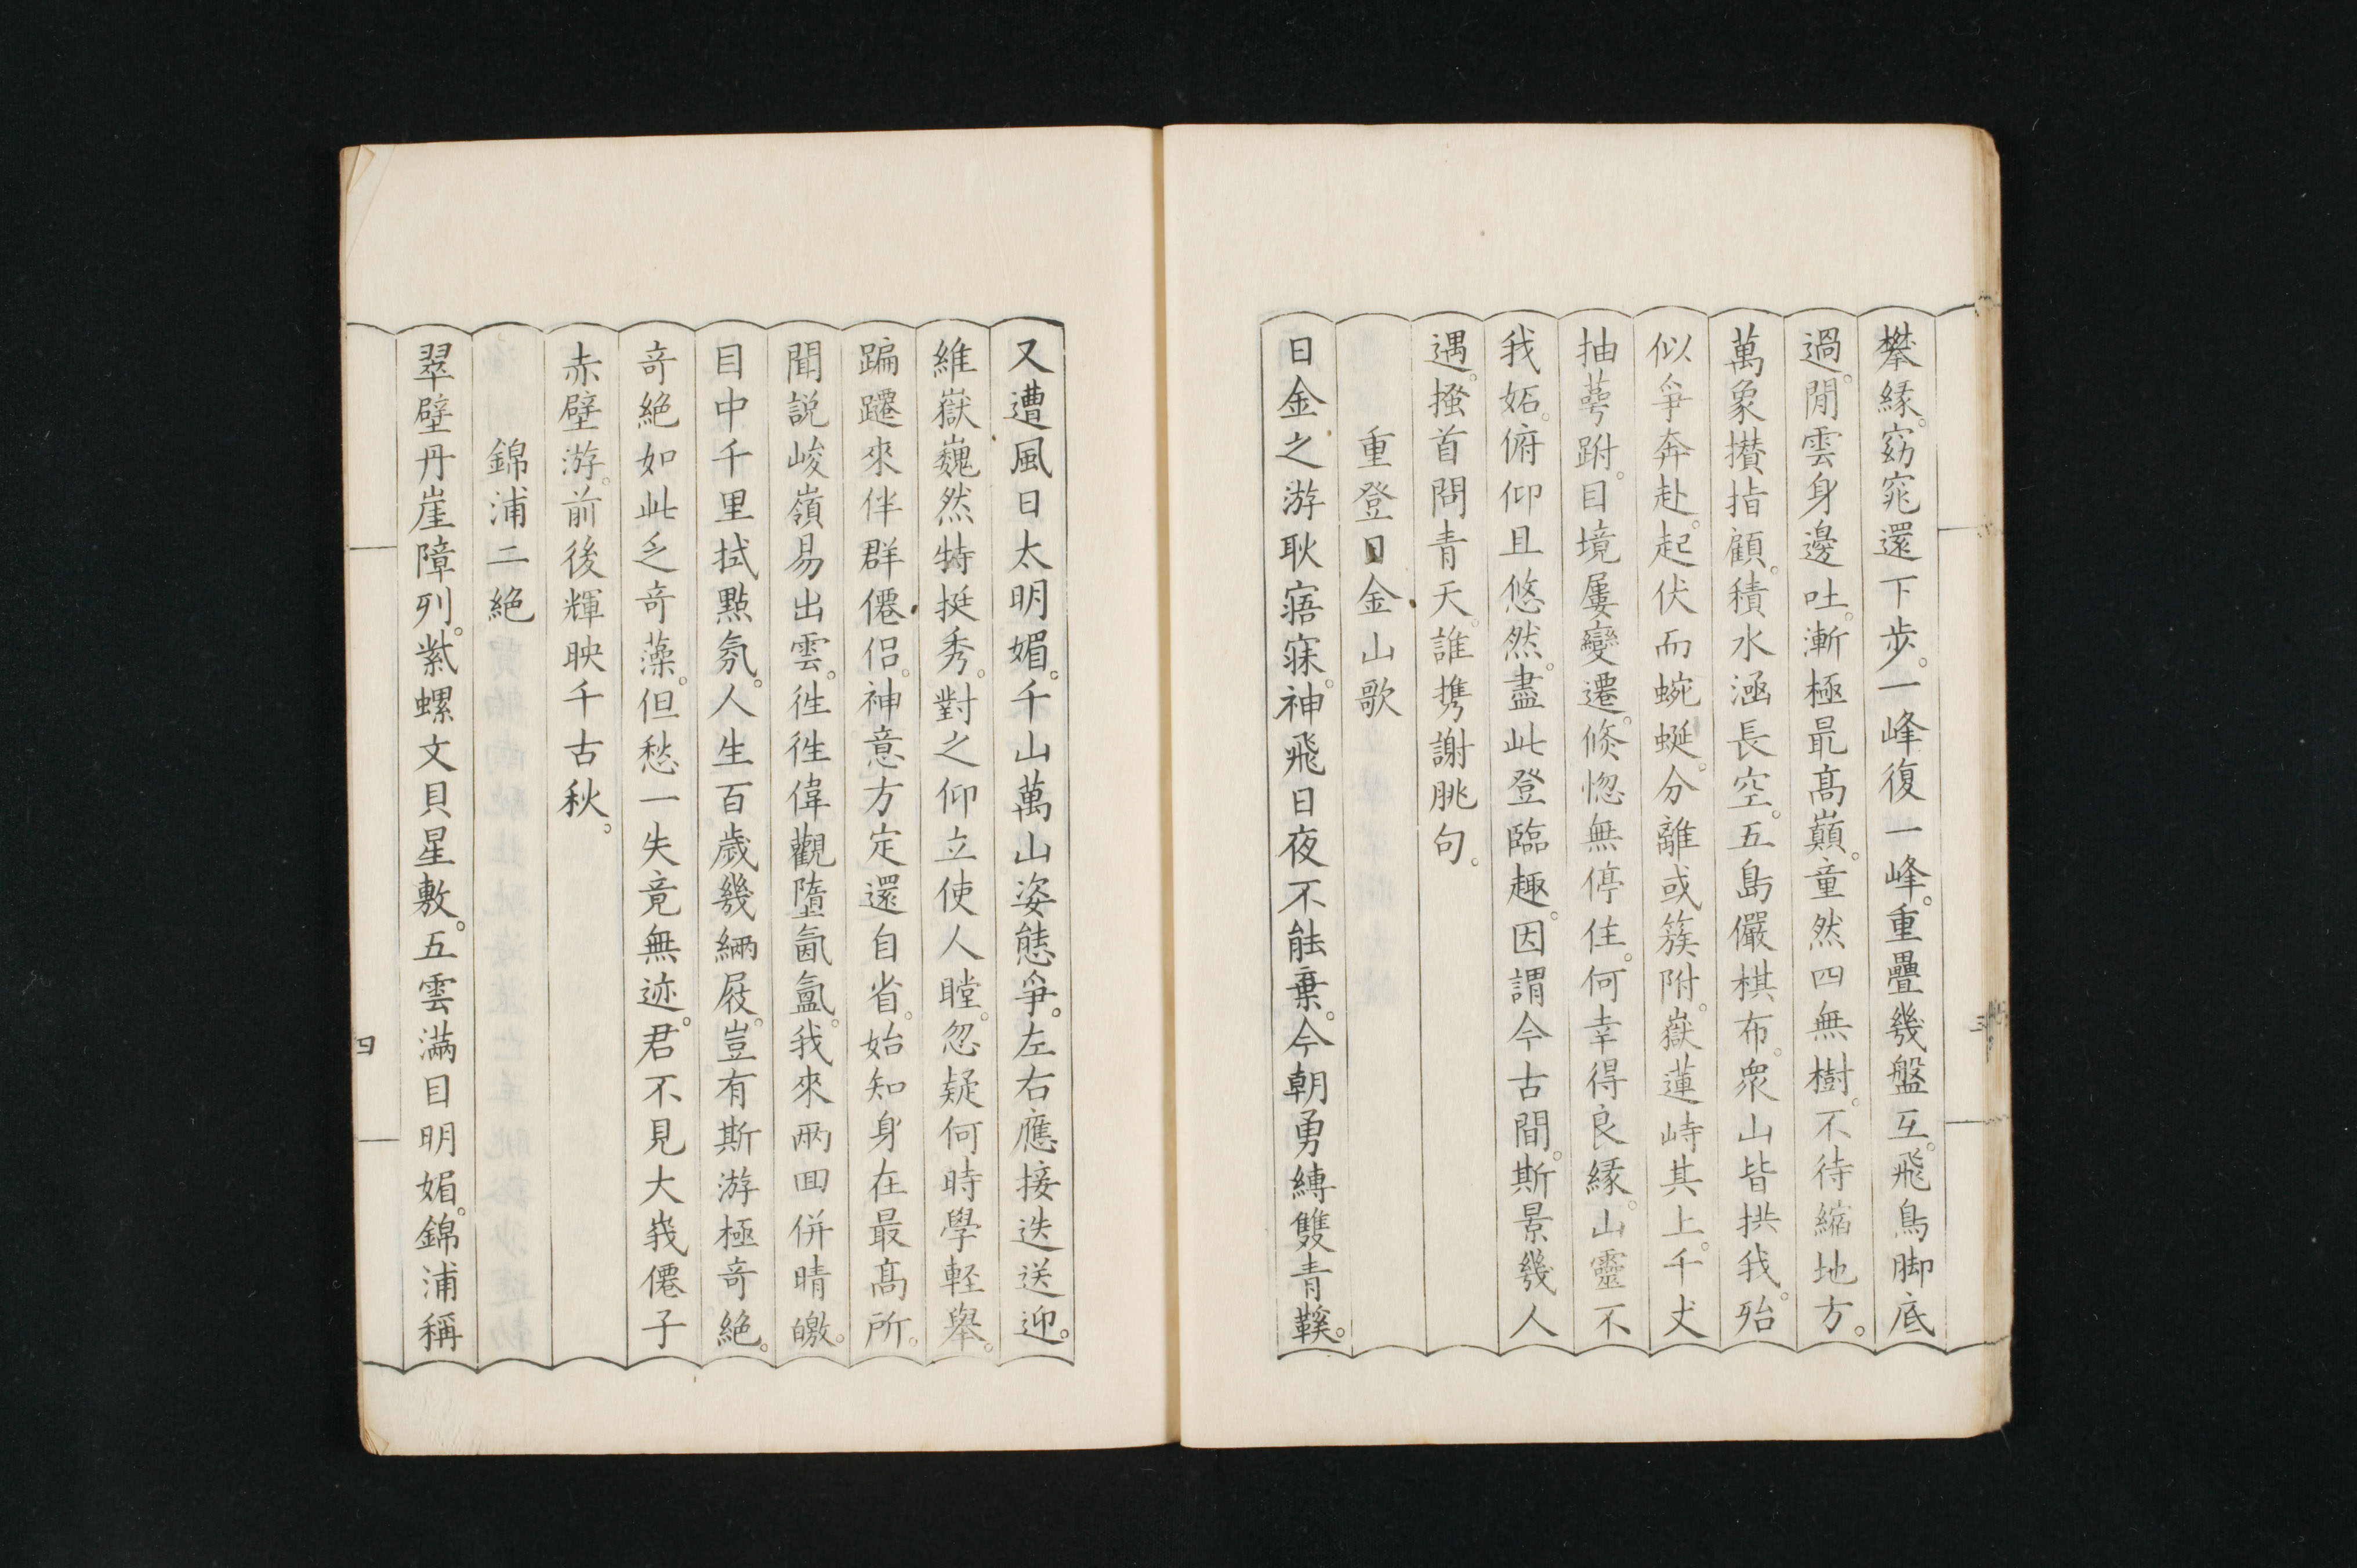 攀緣。窈窕還下步。一峰復一峰。重疊幾盤互。飛鳥脚底
過。閒雲身邊吐。漸極最髙巔。童然四無樹。不待縮地方。
萬象攢指顧。積水涵長空。五島儼棋布。衆山皆拱我。殆
似爭奔赴。起伏而蜿蜒。分離或簇附。嶽蓮峙其上。千丈
抽萼跗。目境屢變遷。倐惚無停住。何幸得良緣。山靈不
我妬。俯仰且悠然。盡此登臨趣。因謂今古間。斯景幾人
遇。搔首問青天。誰携謝朓句。
重登日金山歌
日金之游耿寤寐。神飛日夜不能棄。今朝勇縛雙青鞵。
又遭風日太明媚。千山萬山姿態爭。左右應接迭送迎。
維嶽巍然特挺秀。對之仰立使人瞠。忽疑何時學軽舉。
蹁躚來伴群僊侣。神意方定還自省。始知身在最髙所。
聞説峻嶺易出雲。徃徃偉觀墮氤氳。我來兩回併晴皦。
目中千里拭點氛。人生百歲幾緉屐。豈有斯游極竒絶。
竒絶如此乏竒藻。但愁一失竟無迹。君不見大峩僊子
赤壁游。前後輝映千古秋。
錦浦二絶
翠壁丹崖障列。紫螺文貝星敷。五雲滿目明媚。錦浦稱
四